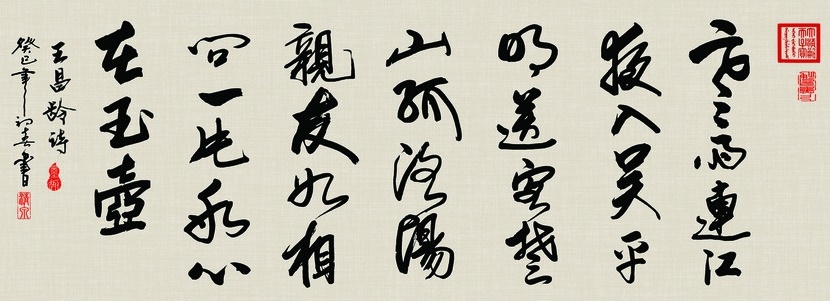 寒雨連江
夜入吳平
明送客楚
山孤洛陽
親友如相
問一片冰心
在玉壺
王昌齡詩
癸巳年初喜書